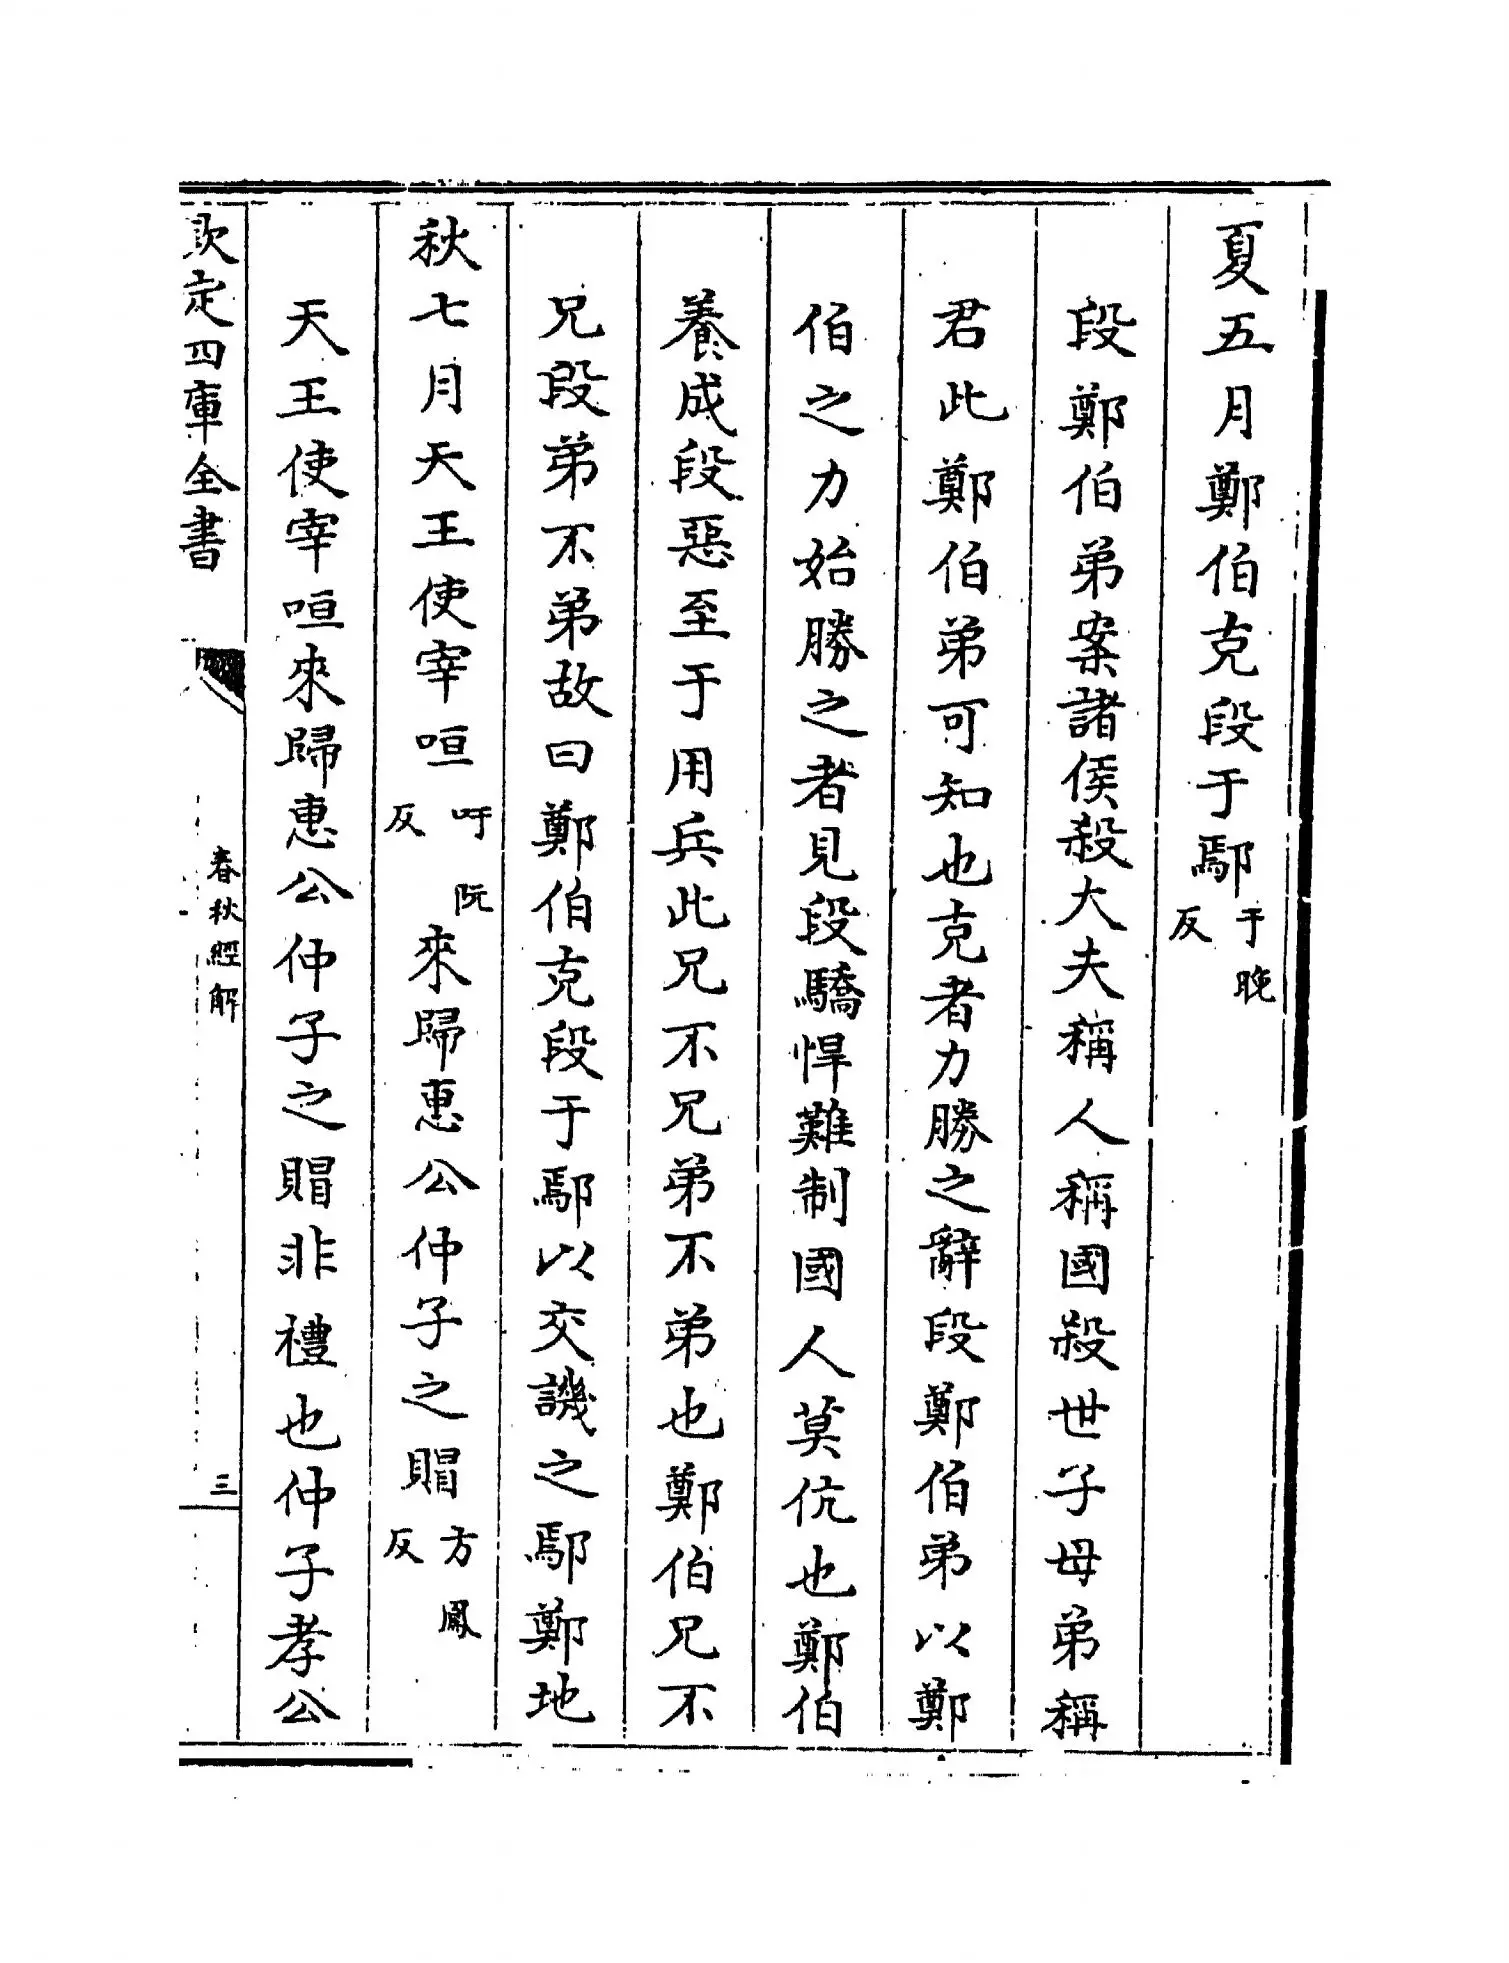 夏五月鄭伯克段于鄢于晚反
段鄭伯弟案諸侯殺大夫稱人稱國殺世子母弟稱
君此鄭伯弟可知也克者力勝之辭段鄭伯弟以鄭
伯之力始勝之者見段驕悍難制國人莫伉也鄭伯
養成段惡至于用兵此兄不兄弟不弟也鄭伯兄不
兄段弟不弟故曰鄭伯克段于鄢以交譏之鄢鄭地
秋七月天王使宰咺吁阮反來歸惠公仲子之賵方鳳反
天王使宰咺來歸惠公仲子之賵非禮也仲子孝公
欽定四庫全書
春秋經解
三